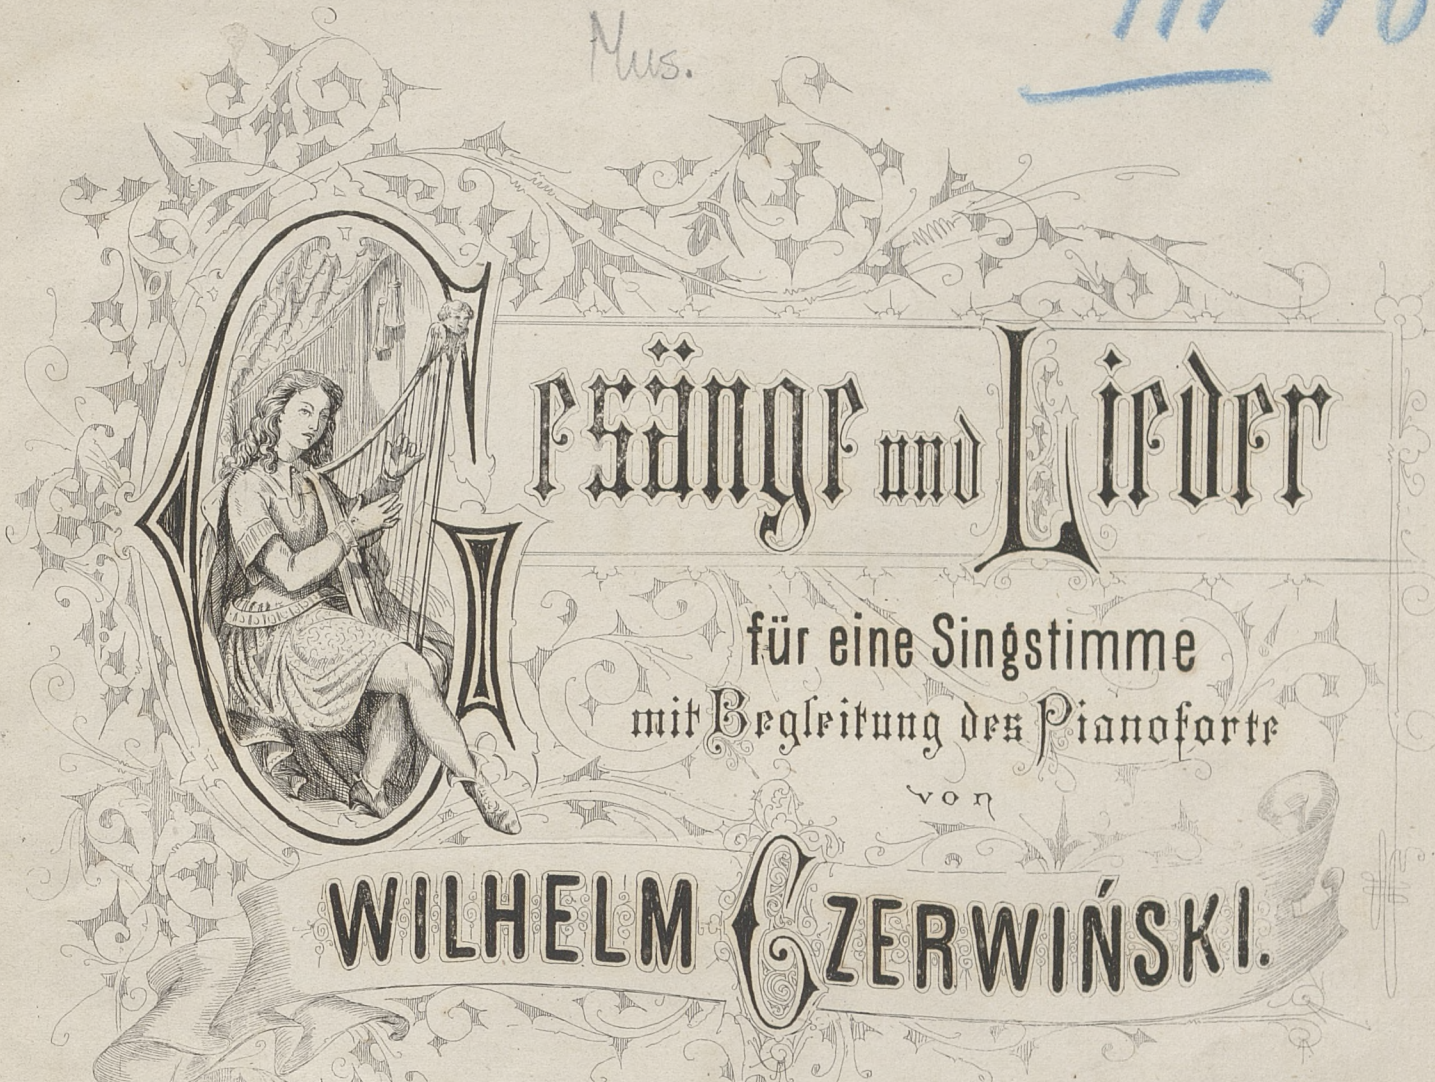 Mus.
Gesänge und Lieder
für eine Singstimme
mit Begleitung des Pianoforte
von
WILHELM CZERWIŃSKI.